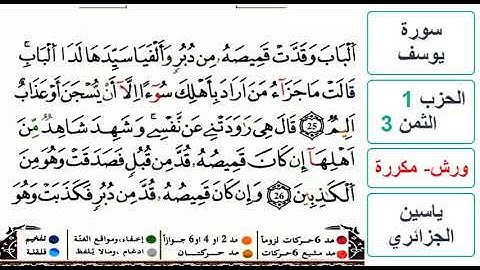 اَ۬لْبَابَ وَقَدَّتْ قَمِيصَهُۥ مِن دُبُرٖ وَأَلْفَيَا سَيِّدَهَا لَدَا اَ۬لْبَابِۖ
قَالَتْ مَا جَزَآءُ مَنَ اَرَادَ بِأَهْلِكَ سُوٓءاً اِلَّآ أَنْ يُّسْجَنَ أَوْ عَذَابٌ
اَلِيمٌۖ 25 قَالَ هِيَ رَٰوَدَتْنِے عَن نَّفْسِےۖ وَشَهِدَ شَاهِدٞ مِّنَ
اَهْلِهَآ إِن كَانَ قَمِيصُهُۥ قُدَّ مِن قُبُلٖ فَصَدَقَتْ وَهُوَ مِنَ
اَ۬لْكَٰذِبِينَۖ 26 وَإِن كَانَ قَمِيصُهُۥ قُدَّ مِن دُبُرٖ فَكَذَبَتْ وَهُوَ
سورة
يوسف
الحزب 1
الثمن 3
ورش- مكررة
ياسين
الجزائري
مد 6 حركات لزوماً
مد 2 او 4 او 6 جوازاً
إخفاء، ومواقع الغنّة
تفخيم
مد مشبع 6 حركات
مد حركتان
ادغام، ومالا يلفظ
قلقلة